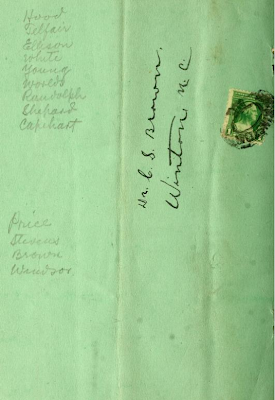 Hood
Telfair
Ellison
White
Young
Worlds
Randolph
Shepard
Capehart
Price
Stevens
Brown
Windsor
Dr. C. S. Brown.
Winton, N. C.